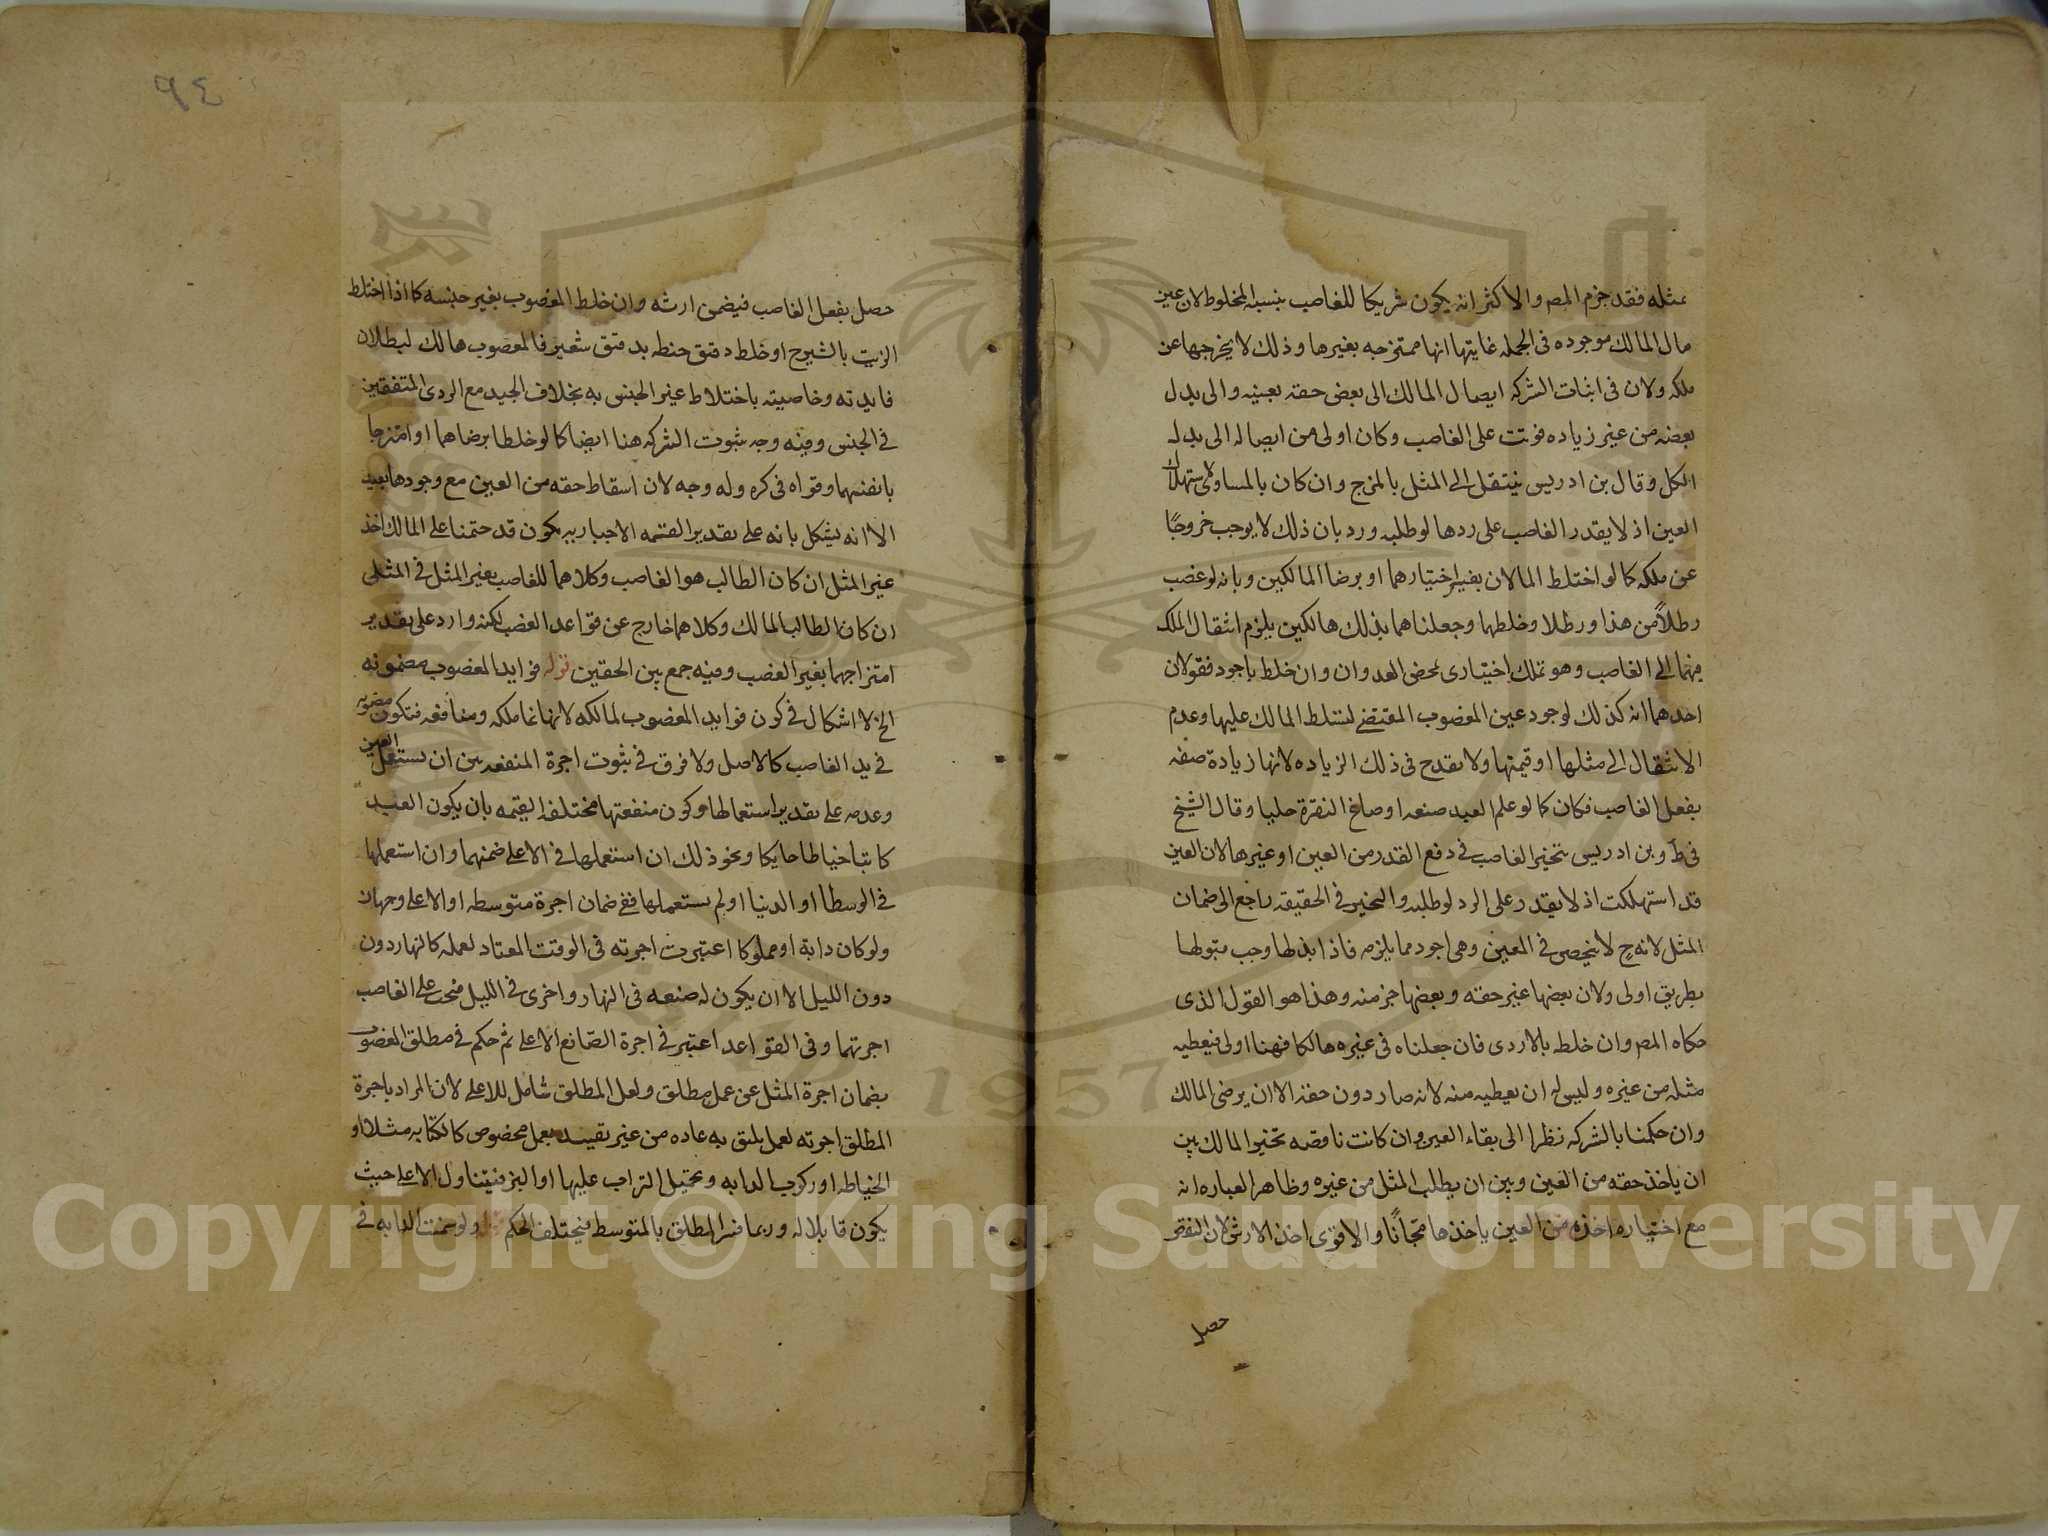 بمثله فقد جزم المص والاكثر انه يكون شريكا للغاصب بنسبة المخلوط لان عين
مال المالك موجوده فى الجمله غايتها انها ممتزجه بغيرها وذلك لا يخرجها عن
ملكه ولان فى اثبات الشركه ايصال المالك الى بعض حقه بعينه والى بدل
بعضه من غير زياده فوتت على الغاصب وكان اولى من ايصاله الى بدله
الكل وقال بن ادريس ينتقل الى المثل بالمزج وان كان بالمساوى لاستهلاك
العين اذ لا يقدر الغاصب على ردها لو طلبه ورد بان ذلك لا يوجب خروجًا
عن ملكه كما لو اختلط المالان بغير اختيارهما او برضا المالكين وبانه لو غصب
رطلاً من هذا ورطلا وخلطهما وجعلناهما بذلك هالكين يلزم انتقال الملك
فيهما الى الغاصب وهو تملك اختيارى لمحض العدوان وان خلط باجود فقولان
احدهما انه كذلك لوجود عين المغصوب المقتضى لتسلط المالك عليها وعدم
الانتقال الى مثلها او قيمتها ولا يقدح فى ذلك الزياده لانها زيادة صفه
بفعل الغاصب فكان كما لو علم العبد صنعه او صاغ النقرة حليا وقال الشيخ
فى ط وبن ادريس يتخير الغاصب فى دفع القدر من العين او غيرها لان العين
قد استهلكت اذ لا يقدر على الرد لو طلبه والتخيير فى الحقيقه راجع الى ضمان
المثل لانه ح لا ينحصر فى العين وهى اجود مما يلزمه فاذا بذلها وجب قبولها
بطريق اولى ولان بعضها عين حقه وبعضها خير منه وهذا هو القول الذى
حكاه المص وان خلطه بالاردى فان جعلناه فى غيره هالكا فهنا اولى فيعطيه
مثله من غيره وليس له ان يعطيه منه لانه صار دون حقه الا ان يرضى المالك
وان حكمنا بالشركه نظرا الى بقاء العين وان كانت ناقصه تخير المالك بين
ان ياخذ حقه من العين وبين ان يطلب المثل من غيره وظاهر العباره انه
مع اختياره اخذه من العين ياخذها مجانًا والاقوى اخذ الارش لان النقص
حصل
٩٤
حصل بفعل الغاصب فيضمن ارشه وان خلط المغصوب بغير جنسه كما اذا اختلط
الزيت بالشيرج او خلط دقيق حنطه بدقيق شعير فالمغصوب هالك لبطلان
فايدته وخاصيته باختلاط غير الجنس به بخلاف الجيد مع الردى المتفقين
فى الجنس وفيه وجه بثبوت الشركه هنا ايضا كما لو خلطا برضاهما او امتزجا
بانفسهما وقواه فى كره وله وجه لان اسقاط حقه من العين مع وجودها بعيد
الا انه يشكل بانه على تقدير القسمه الاجباريه يكون قد حتمنا على المالك اخذ
غير المثل ان كان الطالب هو الغاصب وكلاهما للغاصب بغير المثل فى المثلى
ان كان الطالب المالك وكلاهما خارج عن قواعد الغصب لكنه وارد على تقدير
امتزاجهما بغير الغصب وفيه جمع بين الحقين قوله فوايد المغصوب مضمونه
الخ لا اشكال فى كون فوايد المغصوب لمالكه لانها نما ملكه ومنافعه فتكون مضمونه
فى يد الغاصب كالاصل ولا فرق فى ثبوت اجرة المنفعه بين ان يستعمل العين
وعدمه على تقدير استعمالها وكون منفعتها مختلفة القيمه بان يكون العبد
كاتبا خياطا حايكا ونحو ذلك ان استعملها فى الاعلى ضمنهما وان استعملها
فى الوسطا او الدنيا او لم يستعملها ففى ضمان اجرة متوسطه او الاعلى وجهان
ولو كان دابة او مملوكا اعتبرت اجرته فى الوقت المعتاد لعمله كالنهار دون
دون الليل الا ان يكون له صنعه فى النهار واخرى فى الليل فيجب على الغاصب
اجرتهما وفى القواعد اعتبر فى اجرة الصانع الاعلى ثم حكم فى مطلق المغصوب
بضمان اجرة المثل عن عمل مطلق ولعل المطلق شامل للاعلى لان المراد باجرة
المطلق اجرته لعمل يليق به عاده من غير تقييد بعمل مخصوص كالكتابه مثلا او
الخياطه او ركوب الدابه وتحميل التراب عليها او البز فيتناول الاعلى حيث
يكون قابلا له وربما فسر المطلق بالمتوسط فيختلف الحكم قوله ولو سمنت الدابه فى
Copyright © King Saud University
1957